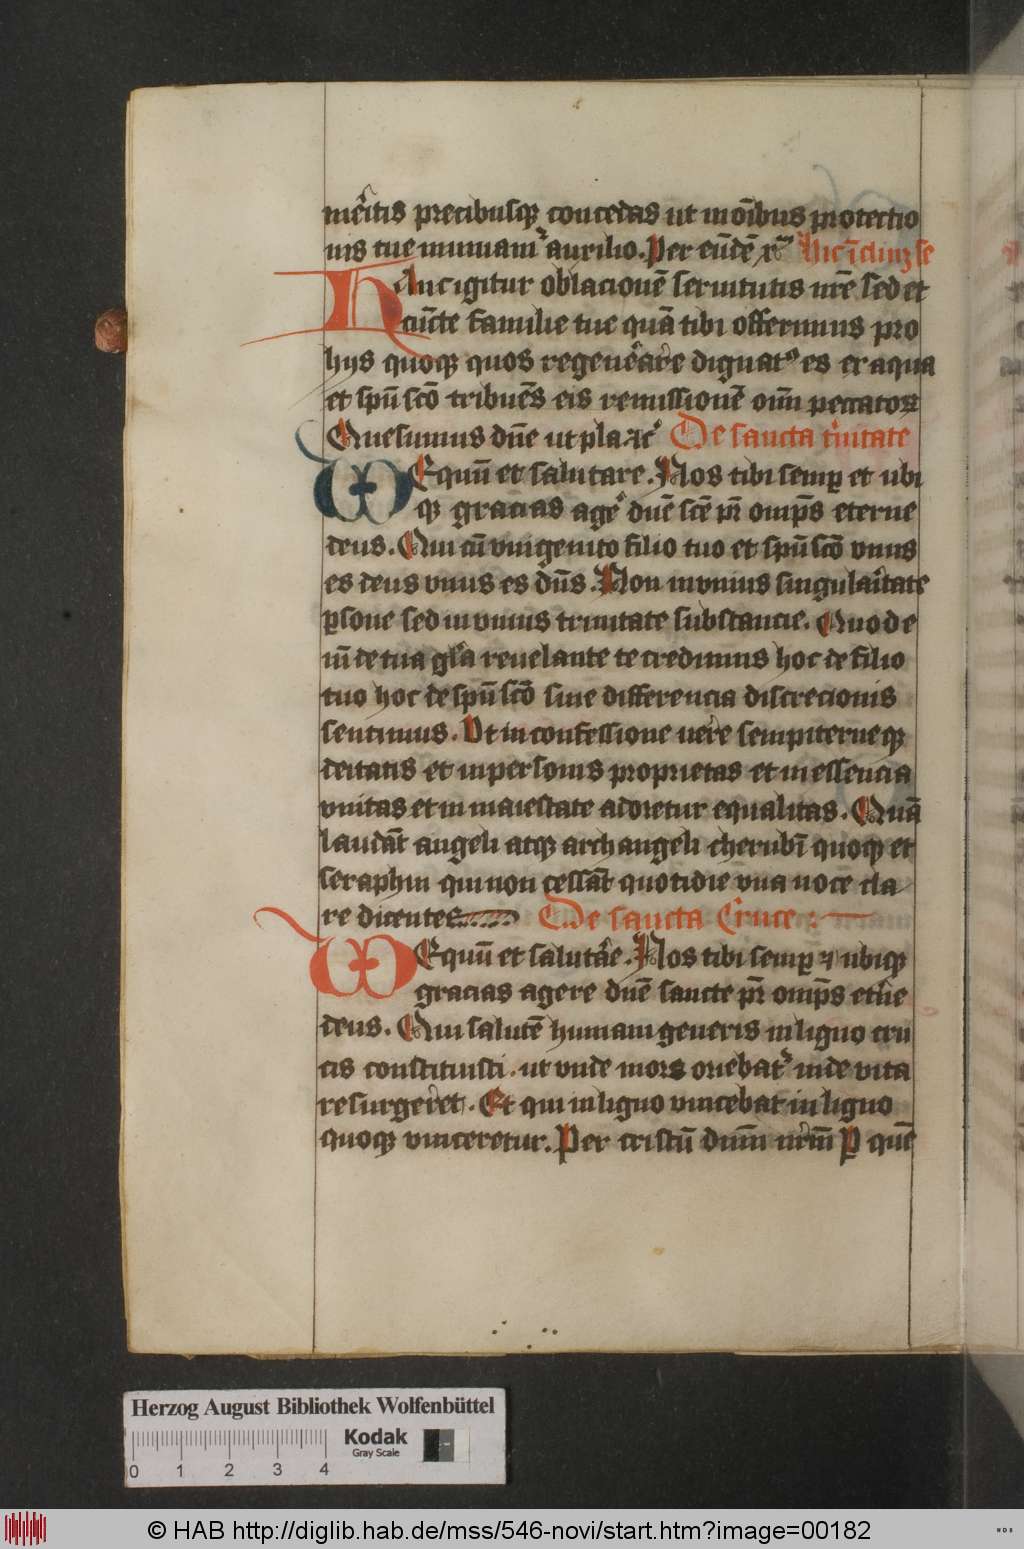 meritis precibusq̢ concedas ut in oı̄bus protectio
nis tue muniam᷑ auxilio. Per eūdē xp̄m Hic īclinȝ se
Hanc igitur oblacionē seruitutis nr̄e sed et
cūcte familie tue quā tibi offerimus pro
hijs quoq̢ quos regenerare dignatꝰ es ex aqua
et spū scō tribuēs eis remissionē oīm peccatoꝝ
Quesumus dn̄e ut pla ⁊c̄ De sancta trinitate
VEquū et salutare. Nos tibi semꝑ et ubi
q̢ gracias age᷑ dn̄e scē pr̄ omp̄s eterne
deus. Qui cū vnigenito filio tuo et spū scō vnus
es deus vnus es dn̄s. Non in vnius singularitate
ꝑsone sed in vnius trinitate substancie. Quod e
nī de tua gl̄a reuelante te credimus hoc de filio
tuo hoc de spū scō sine differencia discrecionis
sentimus. Ut in confessione uere sempiterneq̢
deitatis et in personis proprietas et in essencia
vnitas et in maiestate adoretur equalitas. Quā
laudāt angeli atq̢ archangeli cherubī quoq̢ et
seraphin qui non cessāt quotidie vna uoce cla
re dicentes De sancta Cruce
VEquū et salutare. Nos tibi semꝑ ⁊ ubiq̢
gracias agere dn̄e sancte pr̄ omp̄s et'ne
deus. Qui salutē humani generis in ligno cru
cis constituisti. ut vnde mors oriebat᷑ inde vita
resurgeret. Et qui in ligno vincebat in ligno
quoq̢ vinceretur. Per cristū dnm̄ nr̄m P quē
Herzog August Bibliothek Wolfenbüttel
Kodak
Gray Scale
0 1 2 3 4
© HAB http://diglib.hab.de/mss/546-novi/start.htm?image=00182